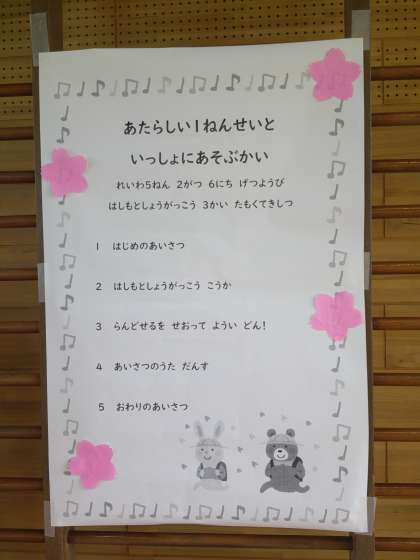 あたらしい1ねんせいと
いっしょにあそぶかい
れいわ5ねん 2がつ 6にち げつようび
はしもとしょうがっこう 3かい たもくてきしつ
1 はじめのあいさつ
2 はしもとしょうがっこう こうか
3 らんどせるを せおって ようい どん!
4 あいさつのうた だんす
5 おわりのあいさつ